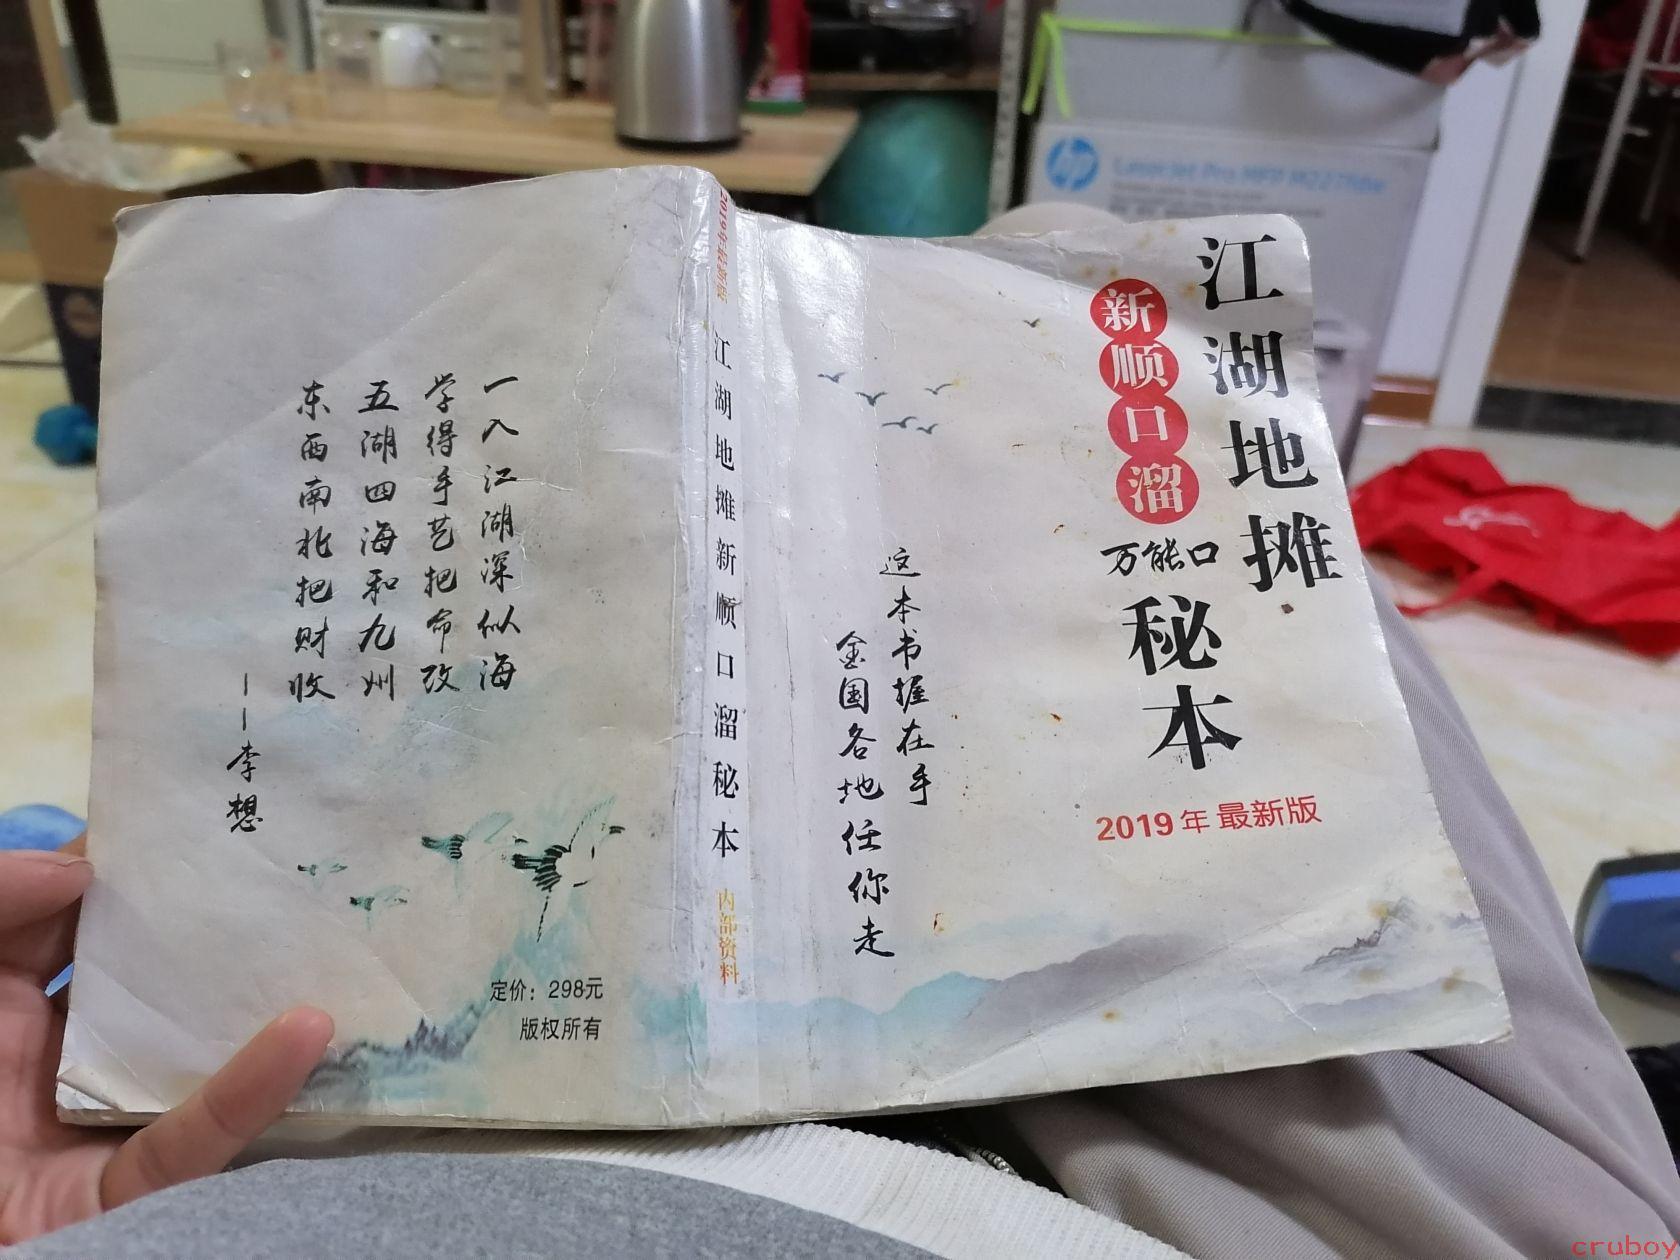 江湖地摊
新顺口溜
万能口
秘本
2019年最新版
这本书握在手
全国各地任你走
2019年最新版
江湖地摊新顺口溜秘本
内部资料
一入江湖深似海
学得手艺把命改
五湖四海和九州
东西南北把财收
——李想
定价：298元
版权所有
hp LaserJet Pro MFP M227fdw
cruboy